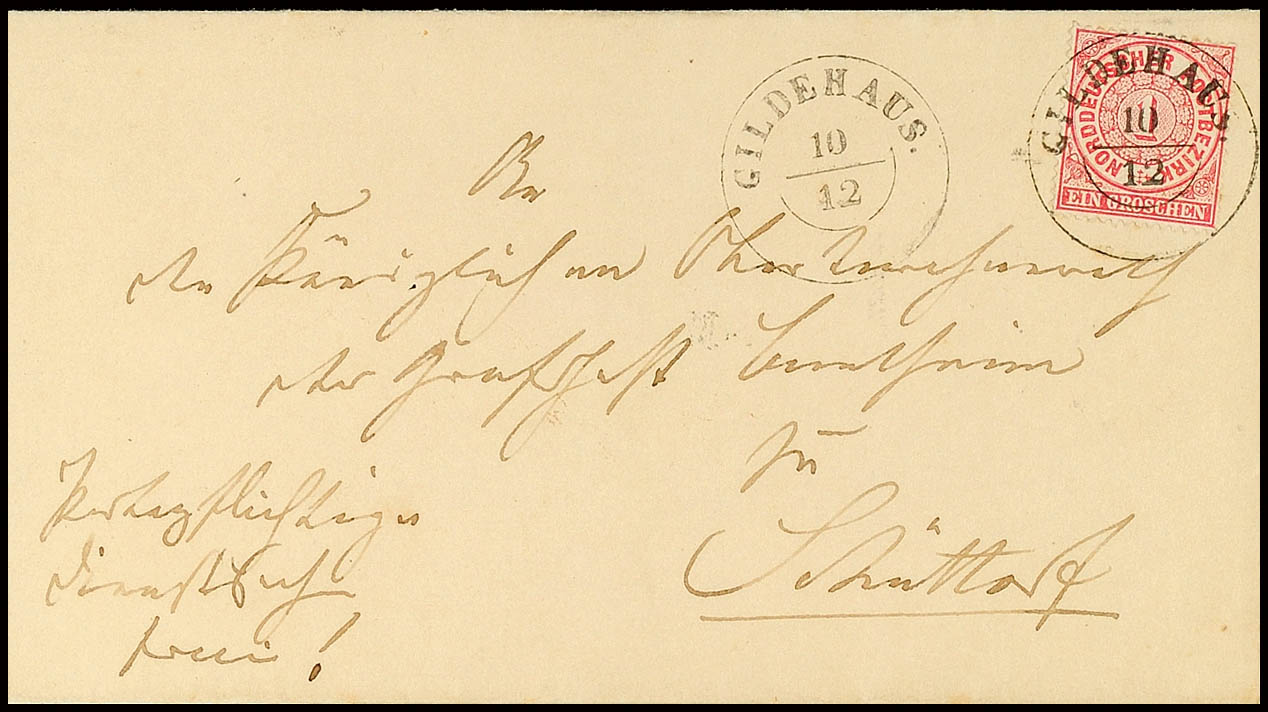 GILDEHAUS.
10
12
GILDEHAUS.
10
12
NORDDEUTSCHER POSTBEZIRK
1
EIN GROSCHEN
An
den Königlichen
der Grafschaft Bentheim
zu
Schüttorf
Portopflichtige
Dienstsache
frei!